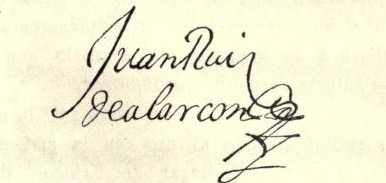 Juan Ruiz
de alarcon